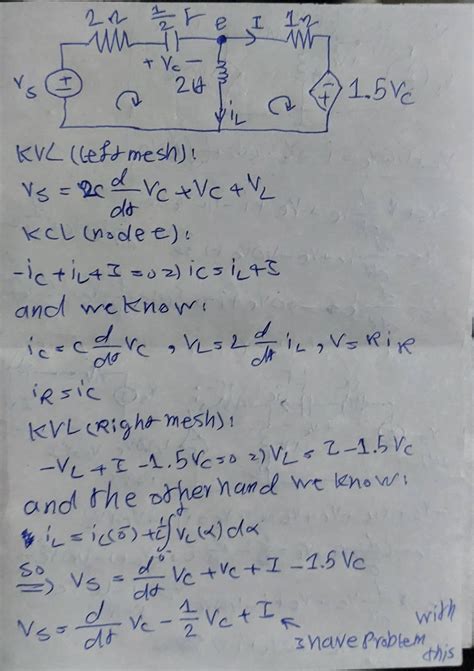 2Ω 1/2 F e I 1Ω
+ Vc −
Vs 2H 1.5Vc
iL
KVL (Left mesh):
Vs = 2c d/dt Vc + Vc + VL
KCL (node e):
-ic + iL + I = 0 => ic = iL + I
and we know:
ic = c d/dt Vc , VL = 2 d/dt iL , V = R iR
iR = ic
KVL (Right mesh):
-VL + I - 1.5Vc = 0 => VL = I - 1.5Vc
and the other hand we know:
iL = iL(0⁻) + 1/L ∫ VL(α) dα
so => Vs = d/dt Vc + Vc + I - 1.5Vc
Vs = d/dt Vc - 1/2 Vc + I
I have problem with this